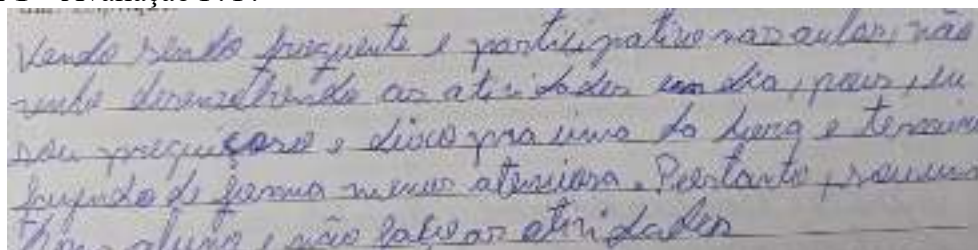 Avaliação
Vendo sendo frequente e participativo nas aulas, não
venho desenvolvendo as atividades em dia, pois, eu
sou preguiçoso e deixo pra cima da hora e termino
fazendo de forma menos atenciosa. Portanto, sou um
bom aluno e não as atividades